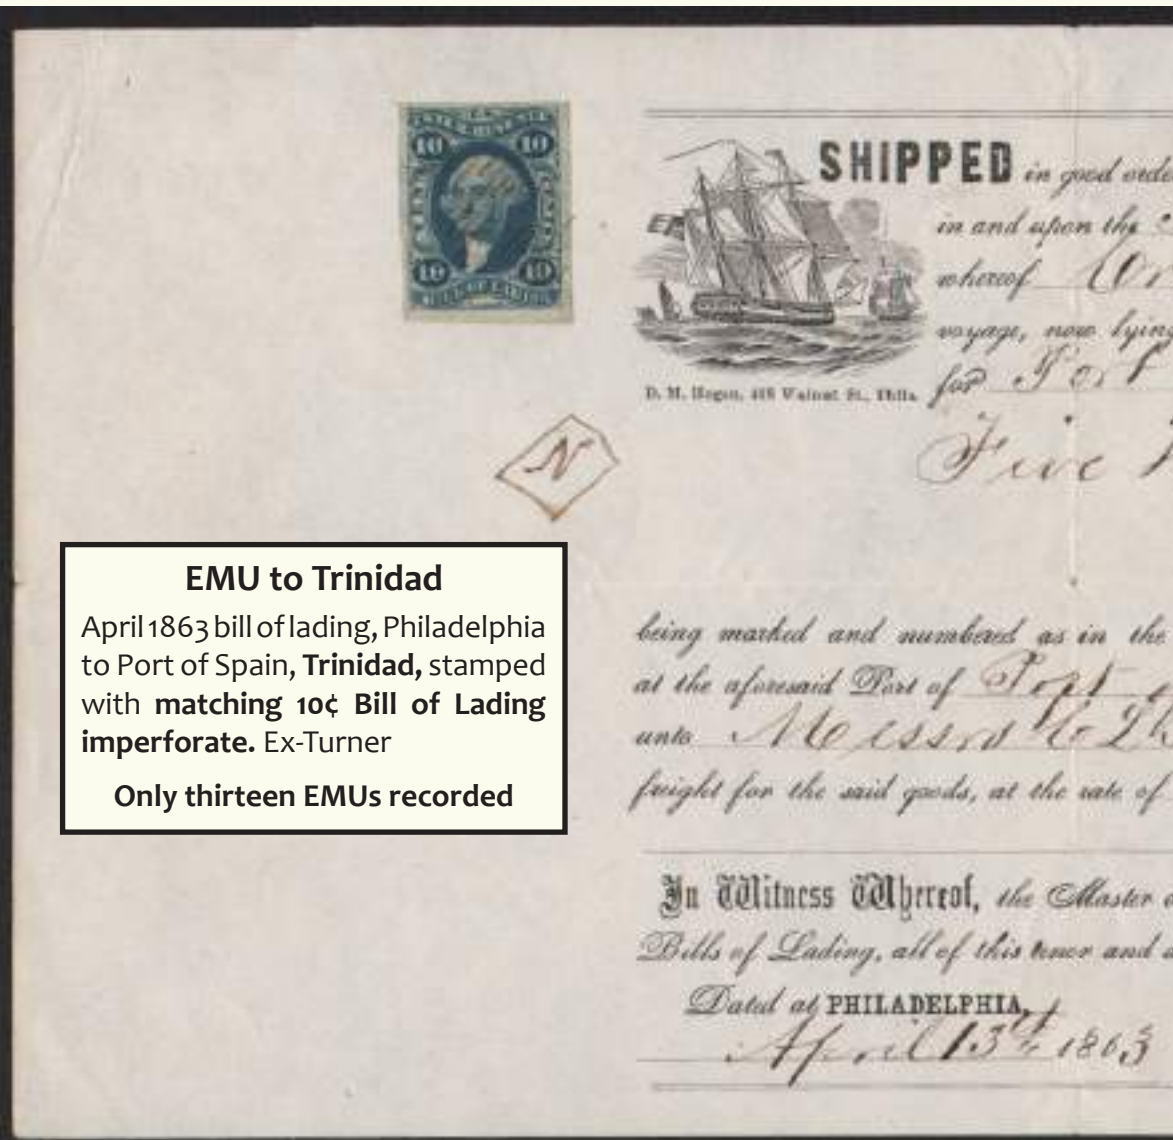 10 10
10 10
SHIPPED in good orde
in and upon the
whereof
voyage, now lying
for Port
D. M. Hogan, 418 Walnut St., Phila.
N
Five
EMU to Trinidad
April 1863 bill of lading, Philadelphia
to Port of Spain, Trinidad, stamped
with matching 10¢ Bill of Lading
imperforate. Ex-Turner
Only thirteen EMUs recorded
being marked and numbered as in the
at the aforesaid Port of Port
unto Messrs
freight for the said goods, at the rate of
In Witness Whereof, the Master
Bills of Lading, all of this tenor and
Dated at PHILADELPHIA,
April 13th 1863